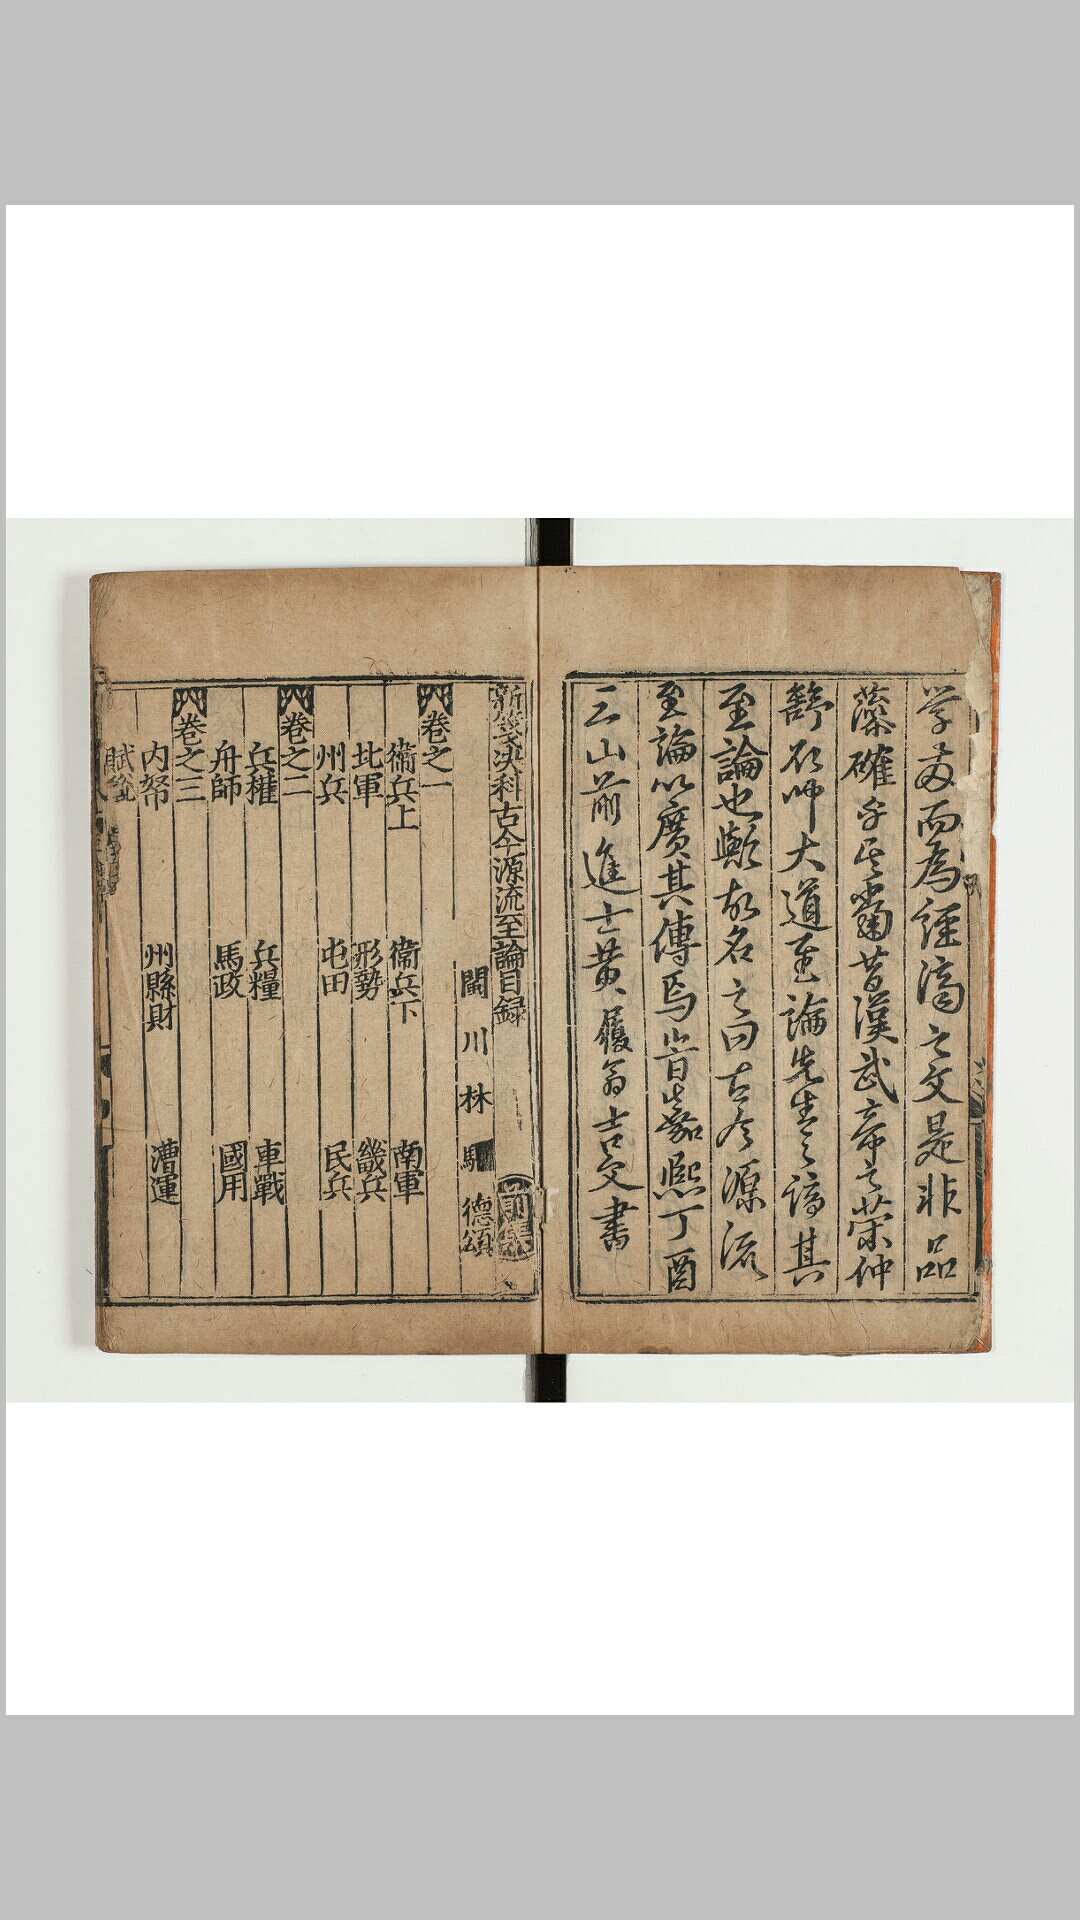 学者而為經濟之文是非品
藻確乎其當昔漢武帝之策仲
舒欲聞大道至論先生之論其
至論也歟故名之曰古今源流
至論以廣其傳焉旹嘉熙丁酉
三山前進士黄履翁吉父書
新箋決科古今源流至論目録 前集
閩川林駉德頌
卷之一
衞兵上 衞兵下 南軍
北軍 形勢 畿兵
州兵 屯田 民兵
卷之二
兵權 兵糧 車戰
舟師 馬政 國用
卷之三
内帑 州縣財 漕運
賦稅